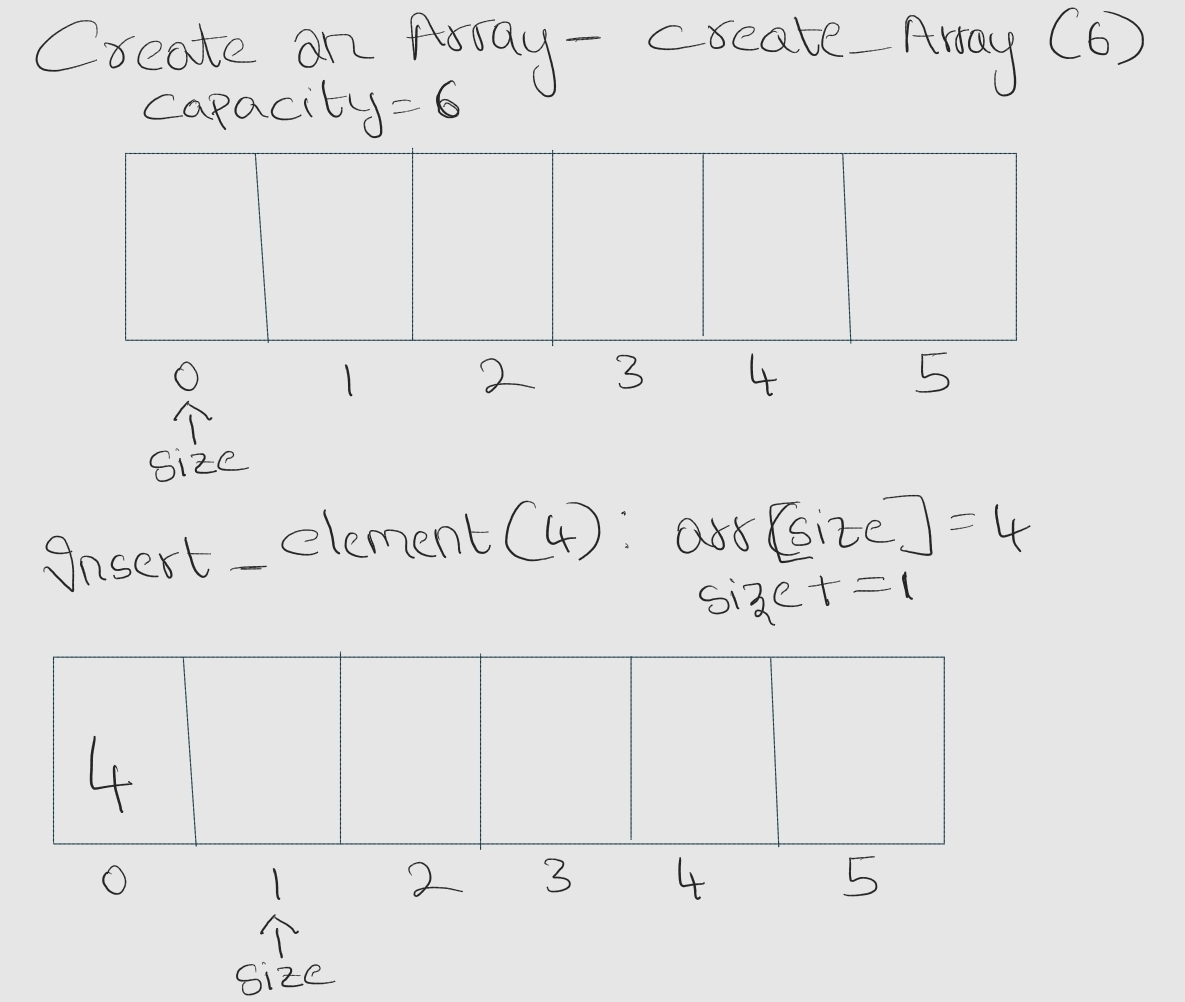 Create an Array - create_Array (6)
capacity = 6
0 1 2 3 4 5
↑
size
Insert_element(4): arr[size] = 4
size+=1
4
0 1 2 3 4 5
↑
size